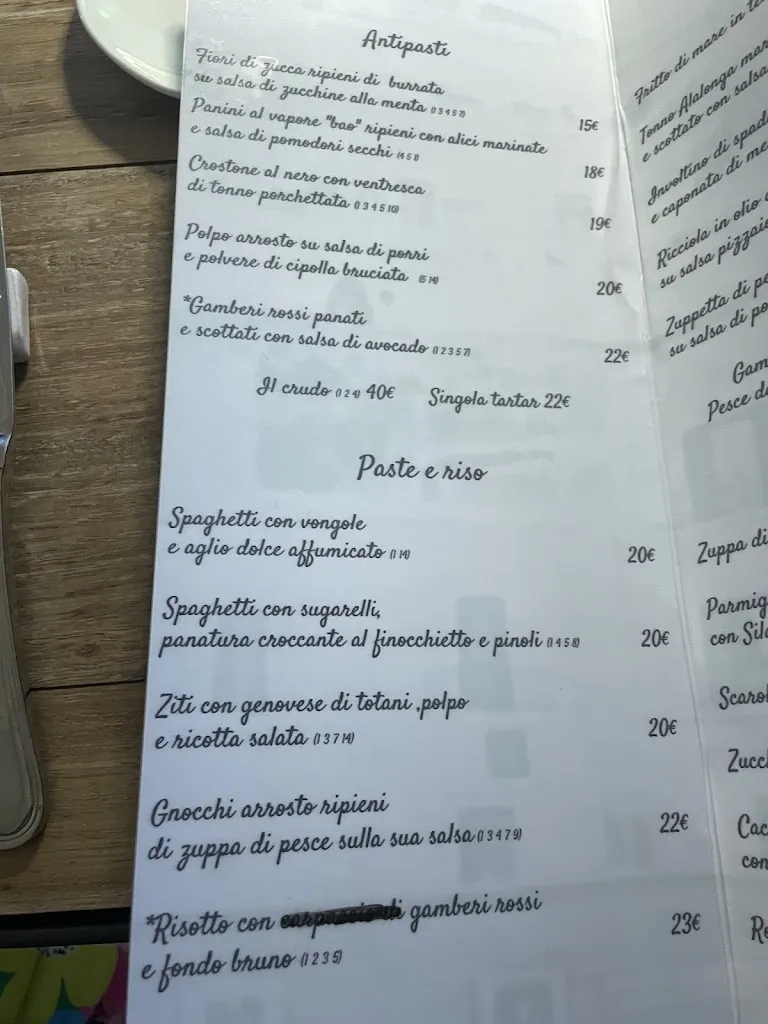 Antipasti
Fiori di zucca ripieni di burrata
su salsa di zucchine alla menta (1 3 4 5 7) 15€
Panini al vapore "bao" ripieni con alici marinate
e salsa di pomodori secchi 18€
Crostone al nero con ventresca
di tonno porchettata (1 3 4 5 10) 19€
Polpo arrosto su salsa di porri
e polvere di cipolla bruciata 20€
*Gamberi rossi panati
e scottati con salsa di avocado (1 2 3 5 7) 22€
Il crudo 40€ Singola tartar 22€
Paste e riso
Spaghetti con vongole
e aglio dolce affumicato (1 14) 20€
Spaghetti con sugarelli,
panatura croccante al finocchietto e pinoli (1 4 5 8) 20€
Ziti con genovese di totani ,polpo
e ricotta salata (1 3 7 14) 20€
Gnocchi arrosto ripieni
di zuppa di pesce sulla sua salsa (1 3 4 7 9) 22€
*Risotto con gamberi rossi
e fondo bruno (1 2 3 5) 23€
Fritto di mare in
Tonno Alalonga
e scottato con salsa
Involtino di
e caponata di
Ricciola in olio
su salsa
Zuppetta di
su salsa di
Pesce
Zuppa di
con